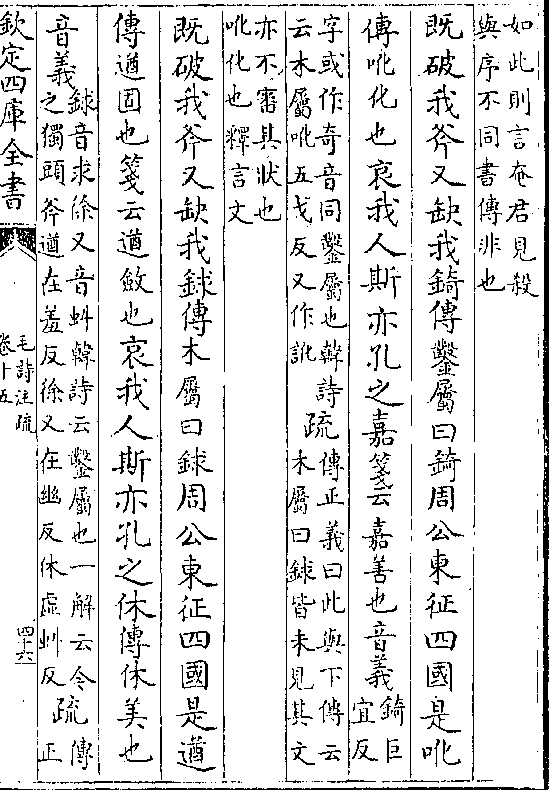 如此則言奄君見殺
與序不同書傳非也
既破我斧又缺我錡傳鑿屬曰錡周公東征四國是吪
傳吪化也哀我人斯亦孔之嘉箋云嘉善也音義錡巨
宜反
字或作奇音同鑿屬也韓詩
云木屬吪五戈反又作訛
疏
傳正義曰此與下傳云
木屬曰銶皆未見其文
亦不審其狀也
吪化也釋言文
既破我斧又缺我銶傳木屬曰銶周公東征四國是遒
傳遒固也箋云遒斂也哀我人斯亦孔之休傳休美也
音義
銶音求徐又音虯韓詩云鑿屬也一解云今
之獨頭斧遒在羞反徐又在幽反休虛虯反
疏
傳
正
欽定四庫全書
毛詩注疏
卷十五
四十六